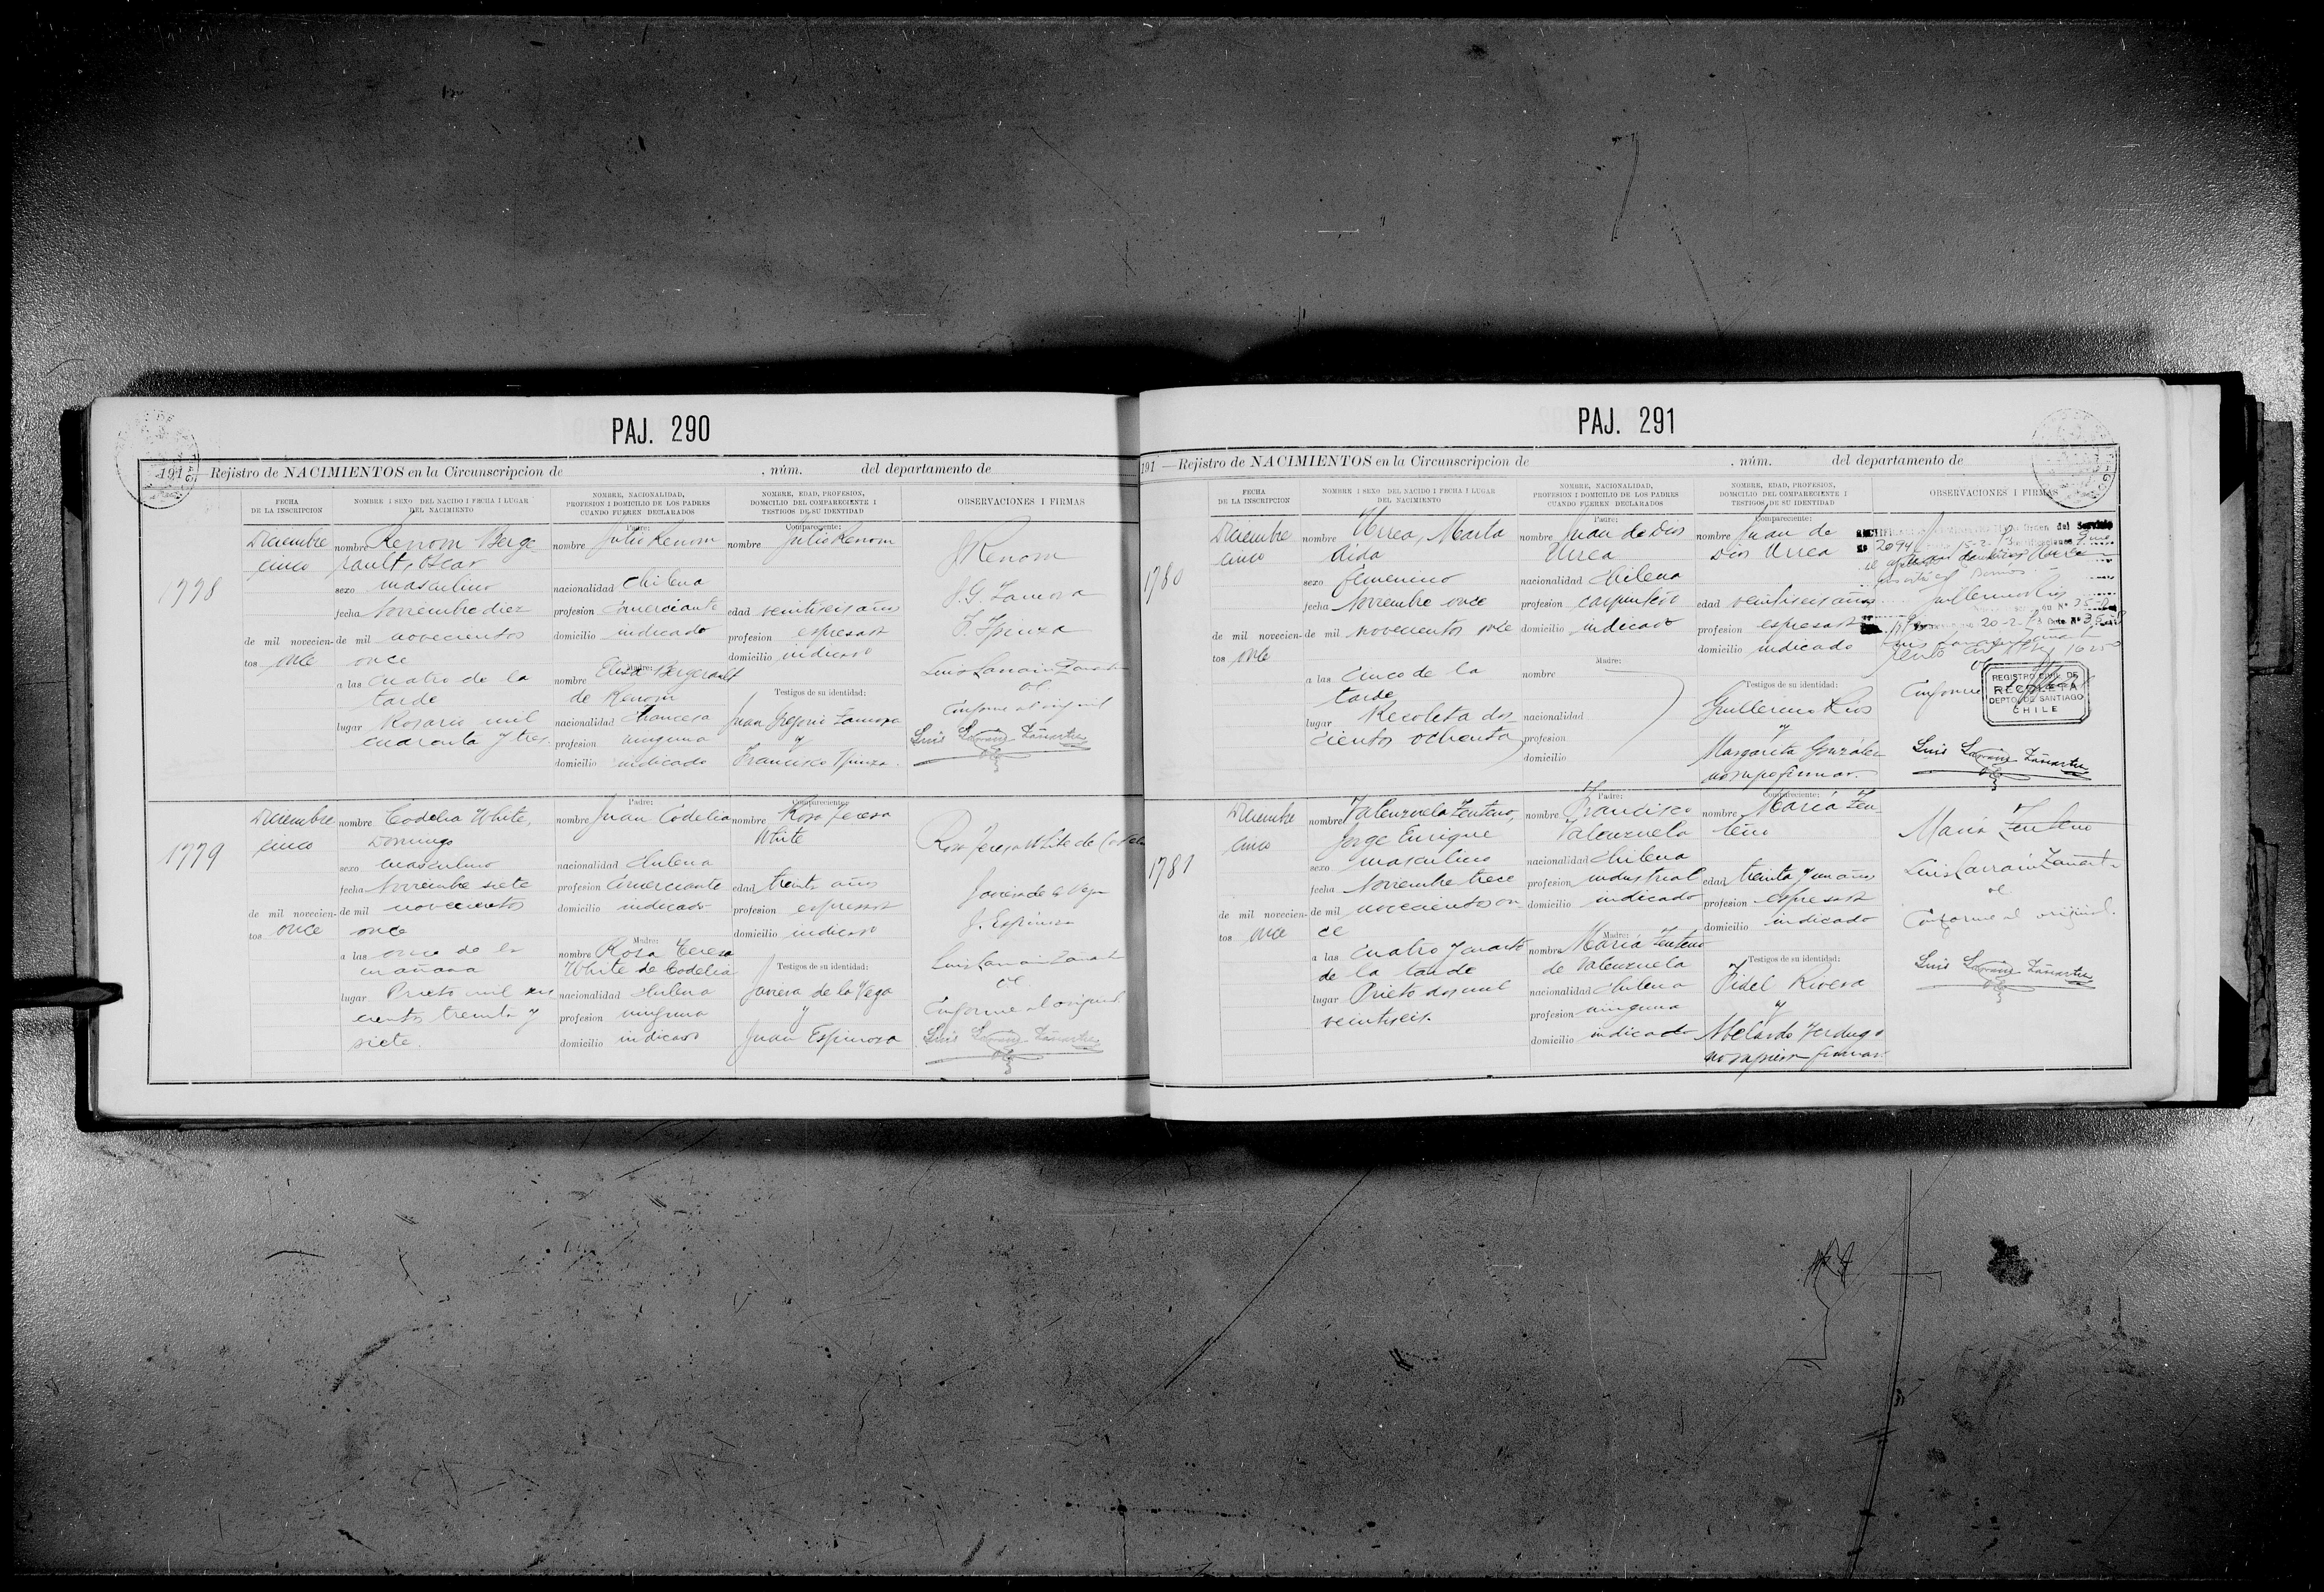 PAJ. 290
191 — Rejistro de NACIMIENTOS en la Circunscripcion de . núm. del departamento de
FECHA DE LA INSCRIPCION
NOMBRE I SEXO DEL NACIDO I FECHA I LUGAR DEL NACIMIENTO
NOMBRE, NACIONALIDAD, PROFESION I DOMICILIO DE LOS PADRES CUANDO FUEREN DECLARADOS
NOMBRE, EDAD, PROFESION, DOMICILIO DEL COMPARECIENTE I TESTIGOS DE SU IDENTIDAD
OBSERVACIONES I FIRMAS
1778
Diciembre
cinco
de mil novecien-
tos once
nombre Renom Berge-
rault, Oscar
sexo masculino
fecha Noviembre diez
de mil novecientos
once
a las cuatro de la
tarde
lugar Rosario mil
cuarenta y tres.
Padre:
nombre Julio Renom
nacionalidad Chilena
profesion Comerciante
domicilio indicado
Madre:
nombre Elisa Bergerault
de Renom
nacionalidad Francesa
profesion ninguna
domicilio indicado
Compareciente:
nombre Julio Renom
edad veintiseis años
profesion espresada
domicilio indicado
Testigos de su identidad:
Juan Gregorio Zamora
y
Francisco Spinza.
J Renom
J. G. Zamora
F. Spinza
Luis Larrain Zañartu
oc.
Conforme al orijinal
Luis Larrain Zañartu
oc
1779
Diciembre
cinco
de mil novecien-
tos once
nombre Codelia White,
Domingo
sexo masculino
fecha Noviembre siete
de mil novecientos
once
a las once de la
mañana
lugar Prieto mil seis
cientos treinta y
siete.
Padre:
nombre Juan Codelia
nacionalidad Chilena
profesion Comerciante
domicilio indicado
Madre:
nombre Rosa Teresa
White de Codelia
nacionalidad Chilena
profesion ninguna
domicilio indicado
Compareciente:
nombre Rosa Teresa
White
edad treinta años
profesion espresada
domicilio indicado
Testigos de su identidad:
Javiera de la Vega
y
Juan Espinosa
Rosa Teresa White de Codelia
Javiera de la Vega
J. Espinosa
Luis Larrain Zañartu
oc
Conforme al orijinal
Luis Larrain Zañartu
oc
PAJ. 291
191 — Rejistro de NACIMIENTOS en la Circunscripcion de . núm. del departamento de
FECHA DE LA INSCRIPCION
NOMBRE I SEXO DEL NACIDO I FECHA I LUGAR DEL NACIMIENTO
NOMBRE, NACIONALIDAD, PROFESION I DOMICILIO DE LOS PADRES CUANDO FUEREN DECLARADOS
NOMBRE, EDAD, PROFESION, DOMICILIO DEL COMPARECIENTE I TESTIGOS DE SU IDENTIDAD
OBSERVACIONES I FIRMAS
1780
Diciembre
cinco
de mil novecien-
tos once
nombre Urrea, Marta
Aida
sexo femenino
fecha Noviembre once
de mil novecientos once
a las cinco de la
tarde
lugar Recoleta dos
cientos ochenta
Padre:
nombre Juan de Dios
Urrea
nacionalidad Chilena
profesion carpintero
domicilio indicado
Madre:
nombre
nacionalidad
profesion
domicilio
Compareciente:
nombre Juan de
Dios Urrea
edad veintiseis años
profesion espresada
domicilio indicado
Testigos de su identidad:
Guillermo Rios
y
Margarita González
no supo firmar.
Orden del Servicio
2094
Guillermo Rios
20-2-
Conforme
REGISTRO CIVIL DE
RECOLETA
DEPTO. DE SANTIAGO
CHILE
Luis Larrain Zañartu
oc
1781
Diciembre
cinco
de mil novecien-
tos once
nombre Valenzuela Zenteno,
Jorge Enrique
sexo masculino
fecha Noviembre trece
de mil novecientos on-
ce
a las cuatro y cuarto
de la tarde
lugar Prieto dos mil
veintiseis.
Padre:
nombre Francisco
Valenzuela
nacionalidad Chilena
profesion industrial
domicilio indicado
Madre:
nombre María Zenteno
de Valenzuela
nacionalidad Chilena
profesion ninguna
domicilio indicado
Compareciente:
nombre María Zen-
teno
edad treinta y un años
profesion espresada
domicilio indicado
Testigos de su identidad:
Fidel Rivera
y
Abelardo Verdugo
no supieron firmar.
María Zenteno
Luis Larrain Zañartu
oc
Conforme al orijinal.
Luis Larrain Zañartu
oc